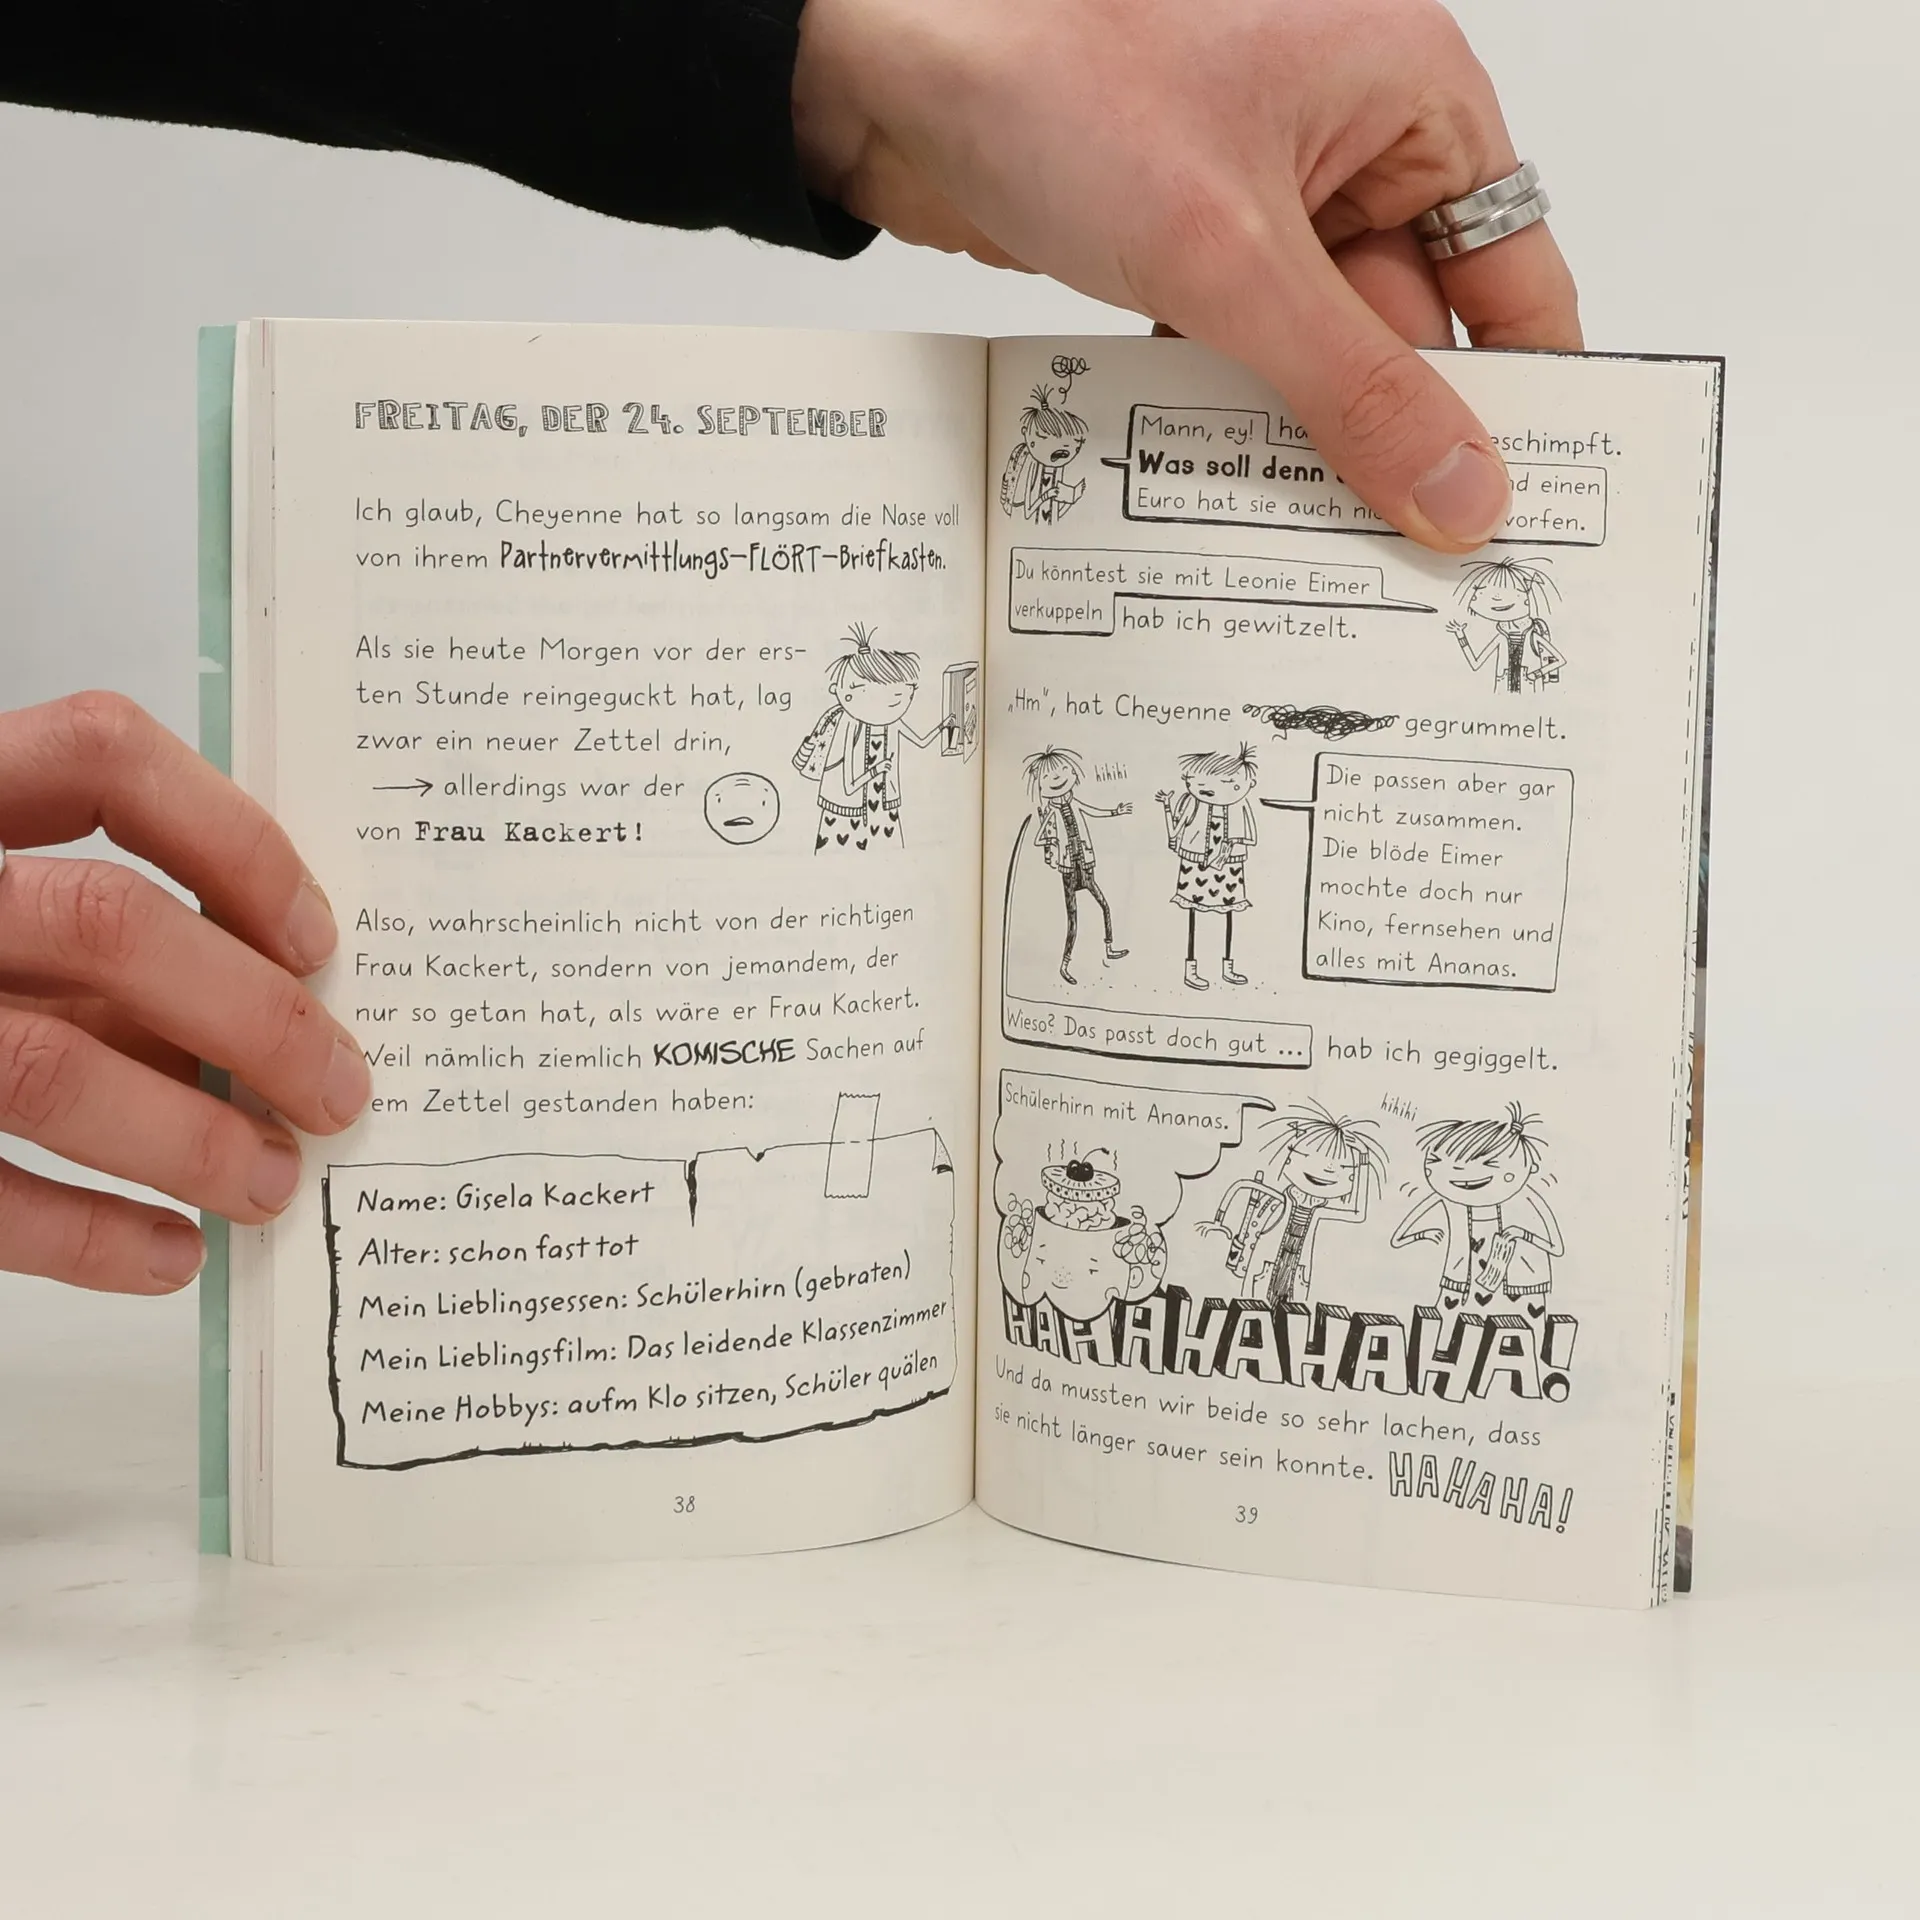 FREITAG, DER 24. SEPTEMBER
Ich glaub, Cheyenne hat so langsam die Nase voll
von ihrem Partnervermittlungs-FLÖRT-Briefkasten.
Als sie heute Morgen vor der ers-
ten Stunde reingeguckt hat, lag
zwar ein neuer Zettel drin,
→ allerdings war der
von Frau Kackert!
Also, wahrscheinlich nicht von der richtigen
Frau Kackert, sondern von jemandem, der
nur so getan hat, als wäre er Frau Kackert.
Weil nämlich ziemlich KOMISCHE Sachen auf
Zettel gestanden haben:
Name: Gisela Kackert
Alter: schon fast tot
Mein Lieblingsessen: Schülerhirn (gebraten)
Mein Lieblingsfilm: Das leidende Klassenzimmer
Meine Hobbys: aufm Klo sitzen, Schüler quälen
38
Mann, ey!
Was soll denn
einen
Euro hat sie auch
Du könntest sie mit Leonie Eimer
verkuppeln hab ich gewitzelt.
„Hm“, hat Cheyenne gegrummelt.
hihihi
Die passen aber gar
nicht zusammen.
Die blöde Eimer
mochte doch nur
Kino, fernsehen und
alles mit Ananas.
Wieso? Das passt doch gut ... hab ich gegiggelt.
Schülerhirn mit Ananas.
hihihi
HAHAHAHAHAHA!
Und da mussten wir beide so sehr lachen, dass
sie nicht länger sauer sein konnte. HAHAHA!
39